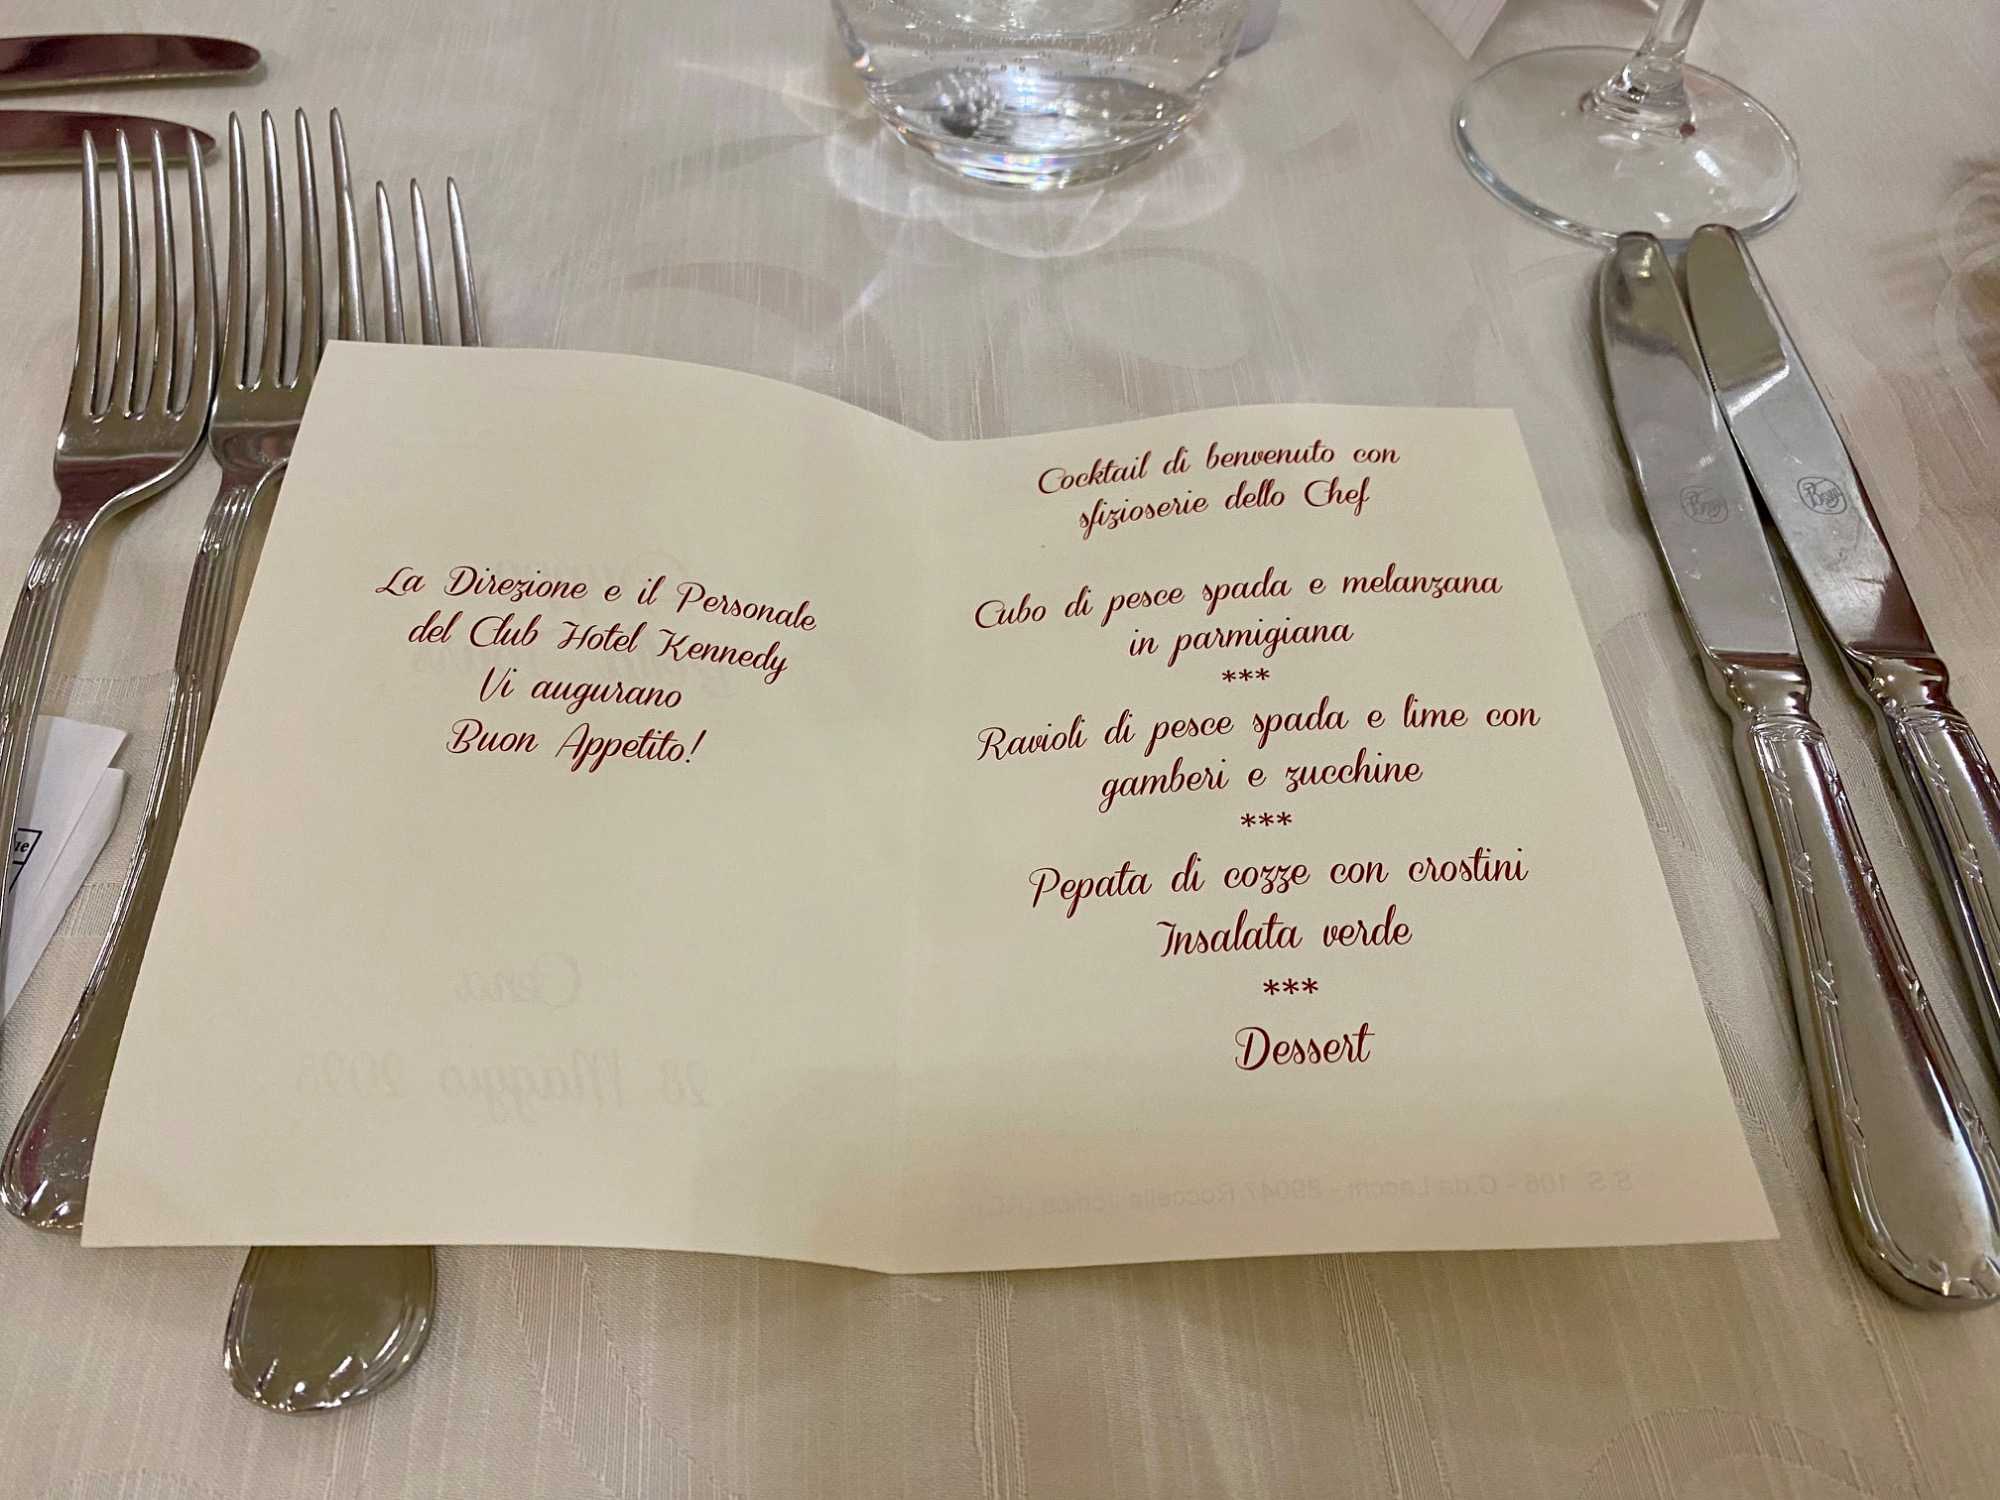 La Direzione e il Personale
del Club Hotel Kennedy
Vi augurano
Buon Appetito!
Cocktail di benvenuto con
sfizioserie dello Chef
Cubo di pesce spada e melanzana
in parmigiana
***
Ravioli di pesce spada e lime con
gamberi e zucchine
***
Pepata di cozze con crostini
Insalata verde
***
Dessert
Cena